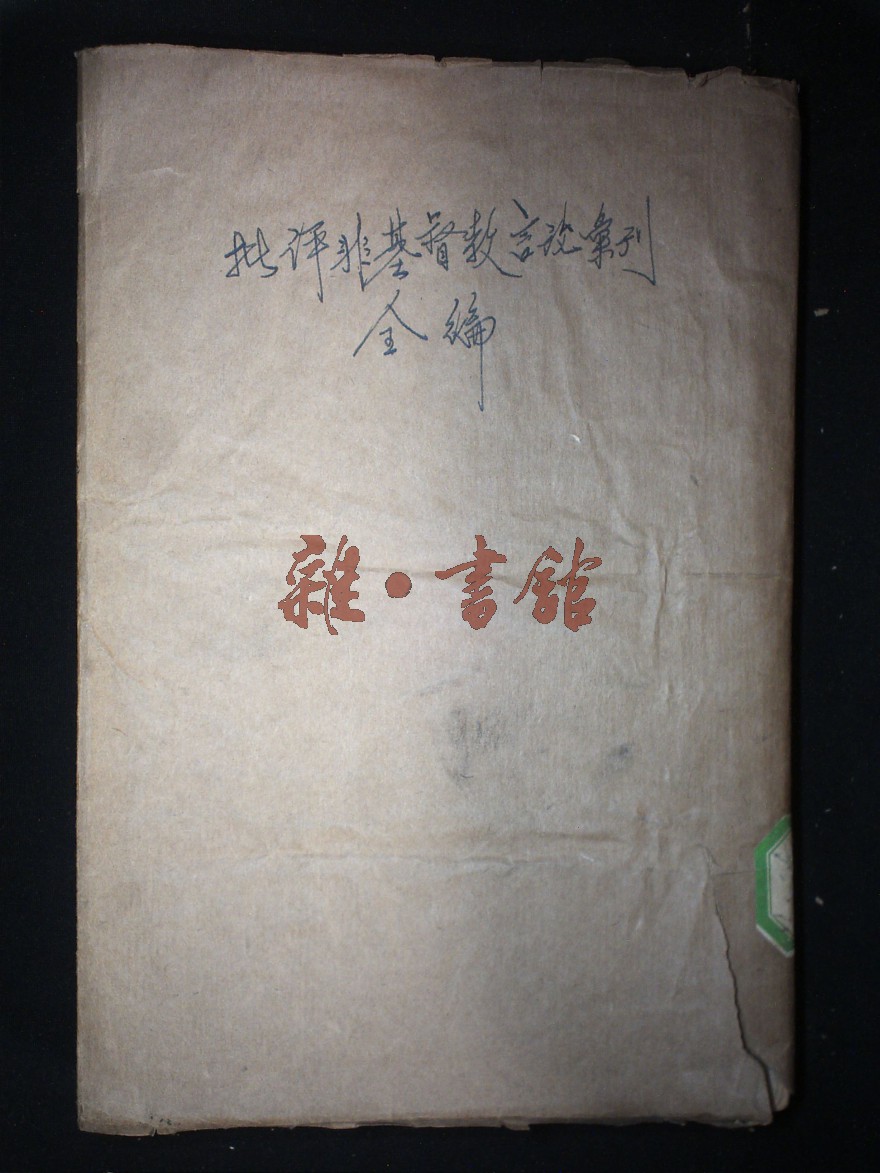 批评非基督教言說彙刊
全编
雜·書館